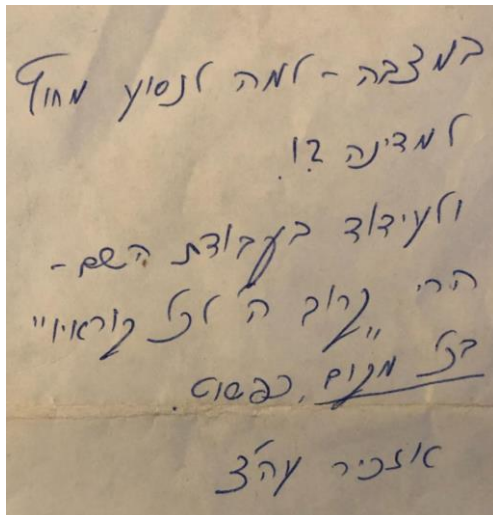 במצבה - למה לנסוע מחוץ
למדינה ?!.
ולעידוד בעבודת השם -
הרי "קרוב ה' לכל קוראיו"
בכל מקום, כפשוט.
אזכיר עה"צ